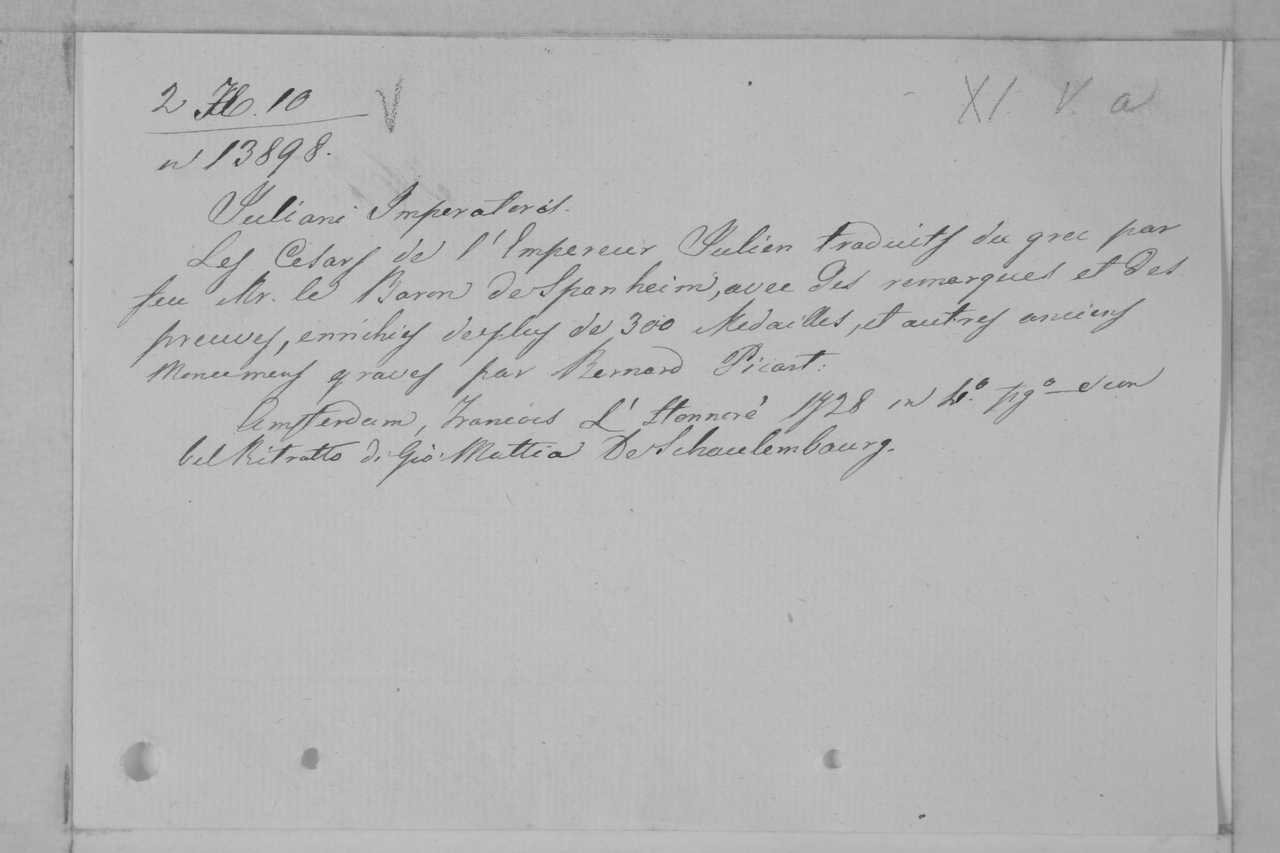 2 H. 10 V XI. V. a
n 13898.
Juliani Imperatoris.
Les Cesars de l'Impereur Julien traduits du grec par
feu Mr. le Baron de Spanheim, avec des remarques et des
preuves, enrichies de plus de 300 Medailles, et autres anciens
Monumens graves par Bernard Picart:
Amsterdam, Francois L'Honnoré 1728 in 4.° pg.° con
bel Ritratto di Gio: Mattia De Schoulembourg.